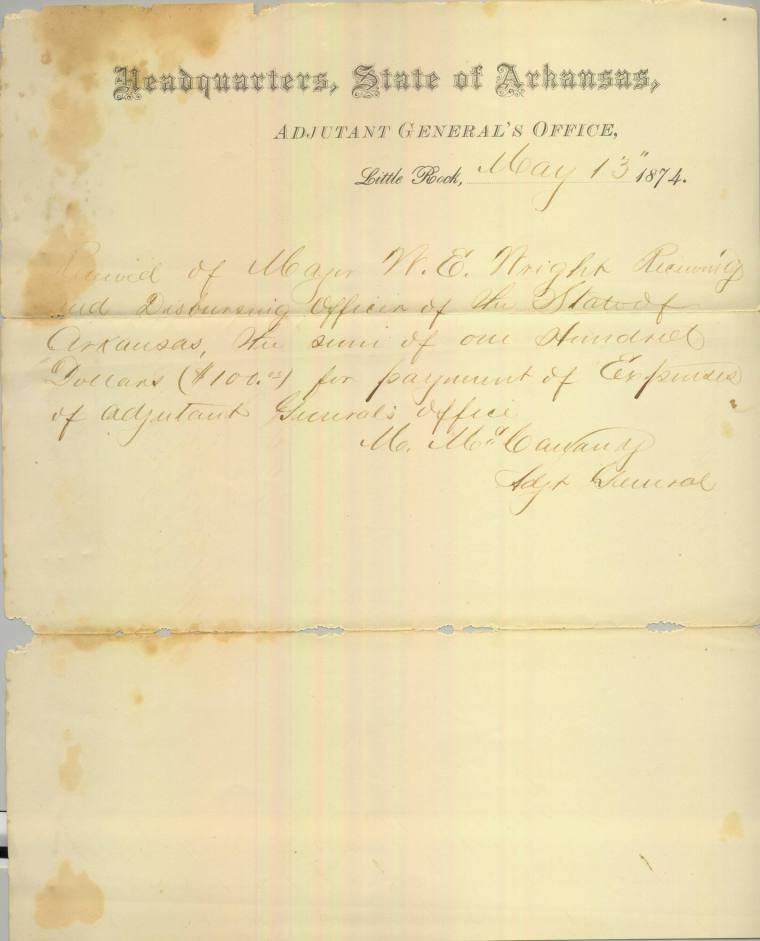 Headquarters, State of Arkansas,
ADJUTANT GENERAL'S OFFICE,
Little Rock, May 13" 1874.
Received of Major W. E. Wright Receiving
and Disbursing Officer of the State of
Arkansas, the sum of one Hundred
Dollars ($100.00) for payment of Expenses
of adjutant General's office
M. McCanany
Adjt General